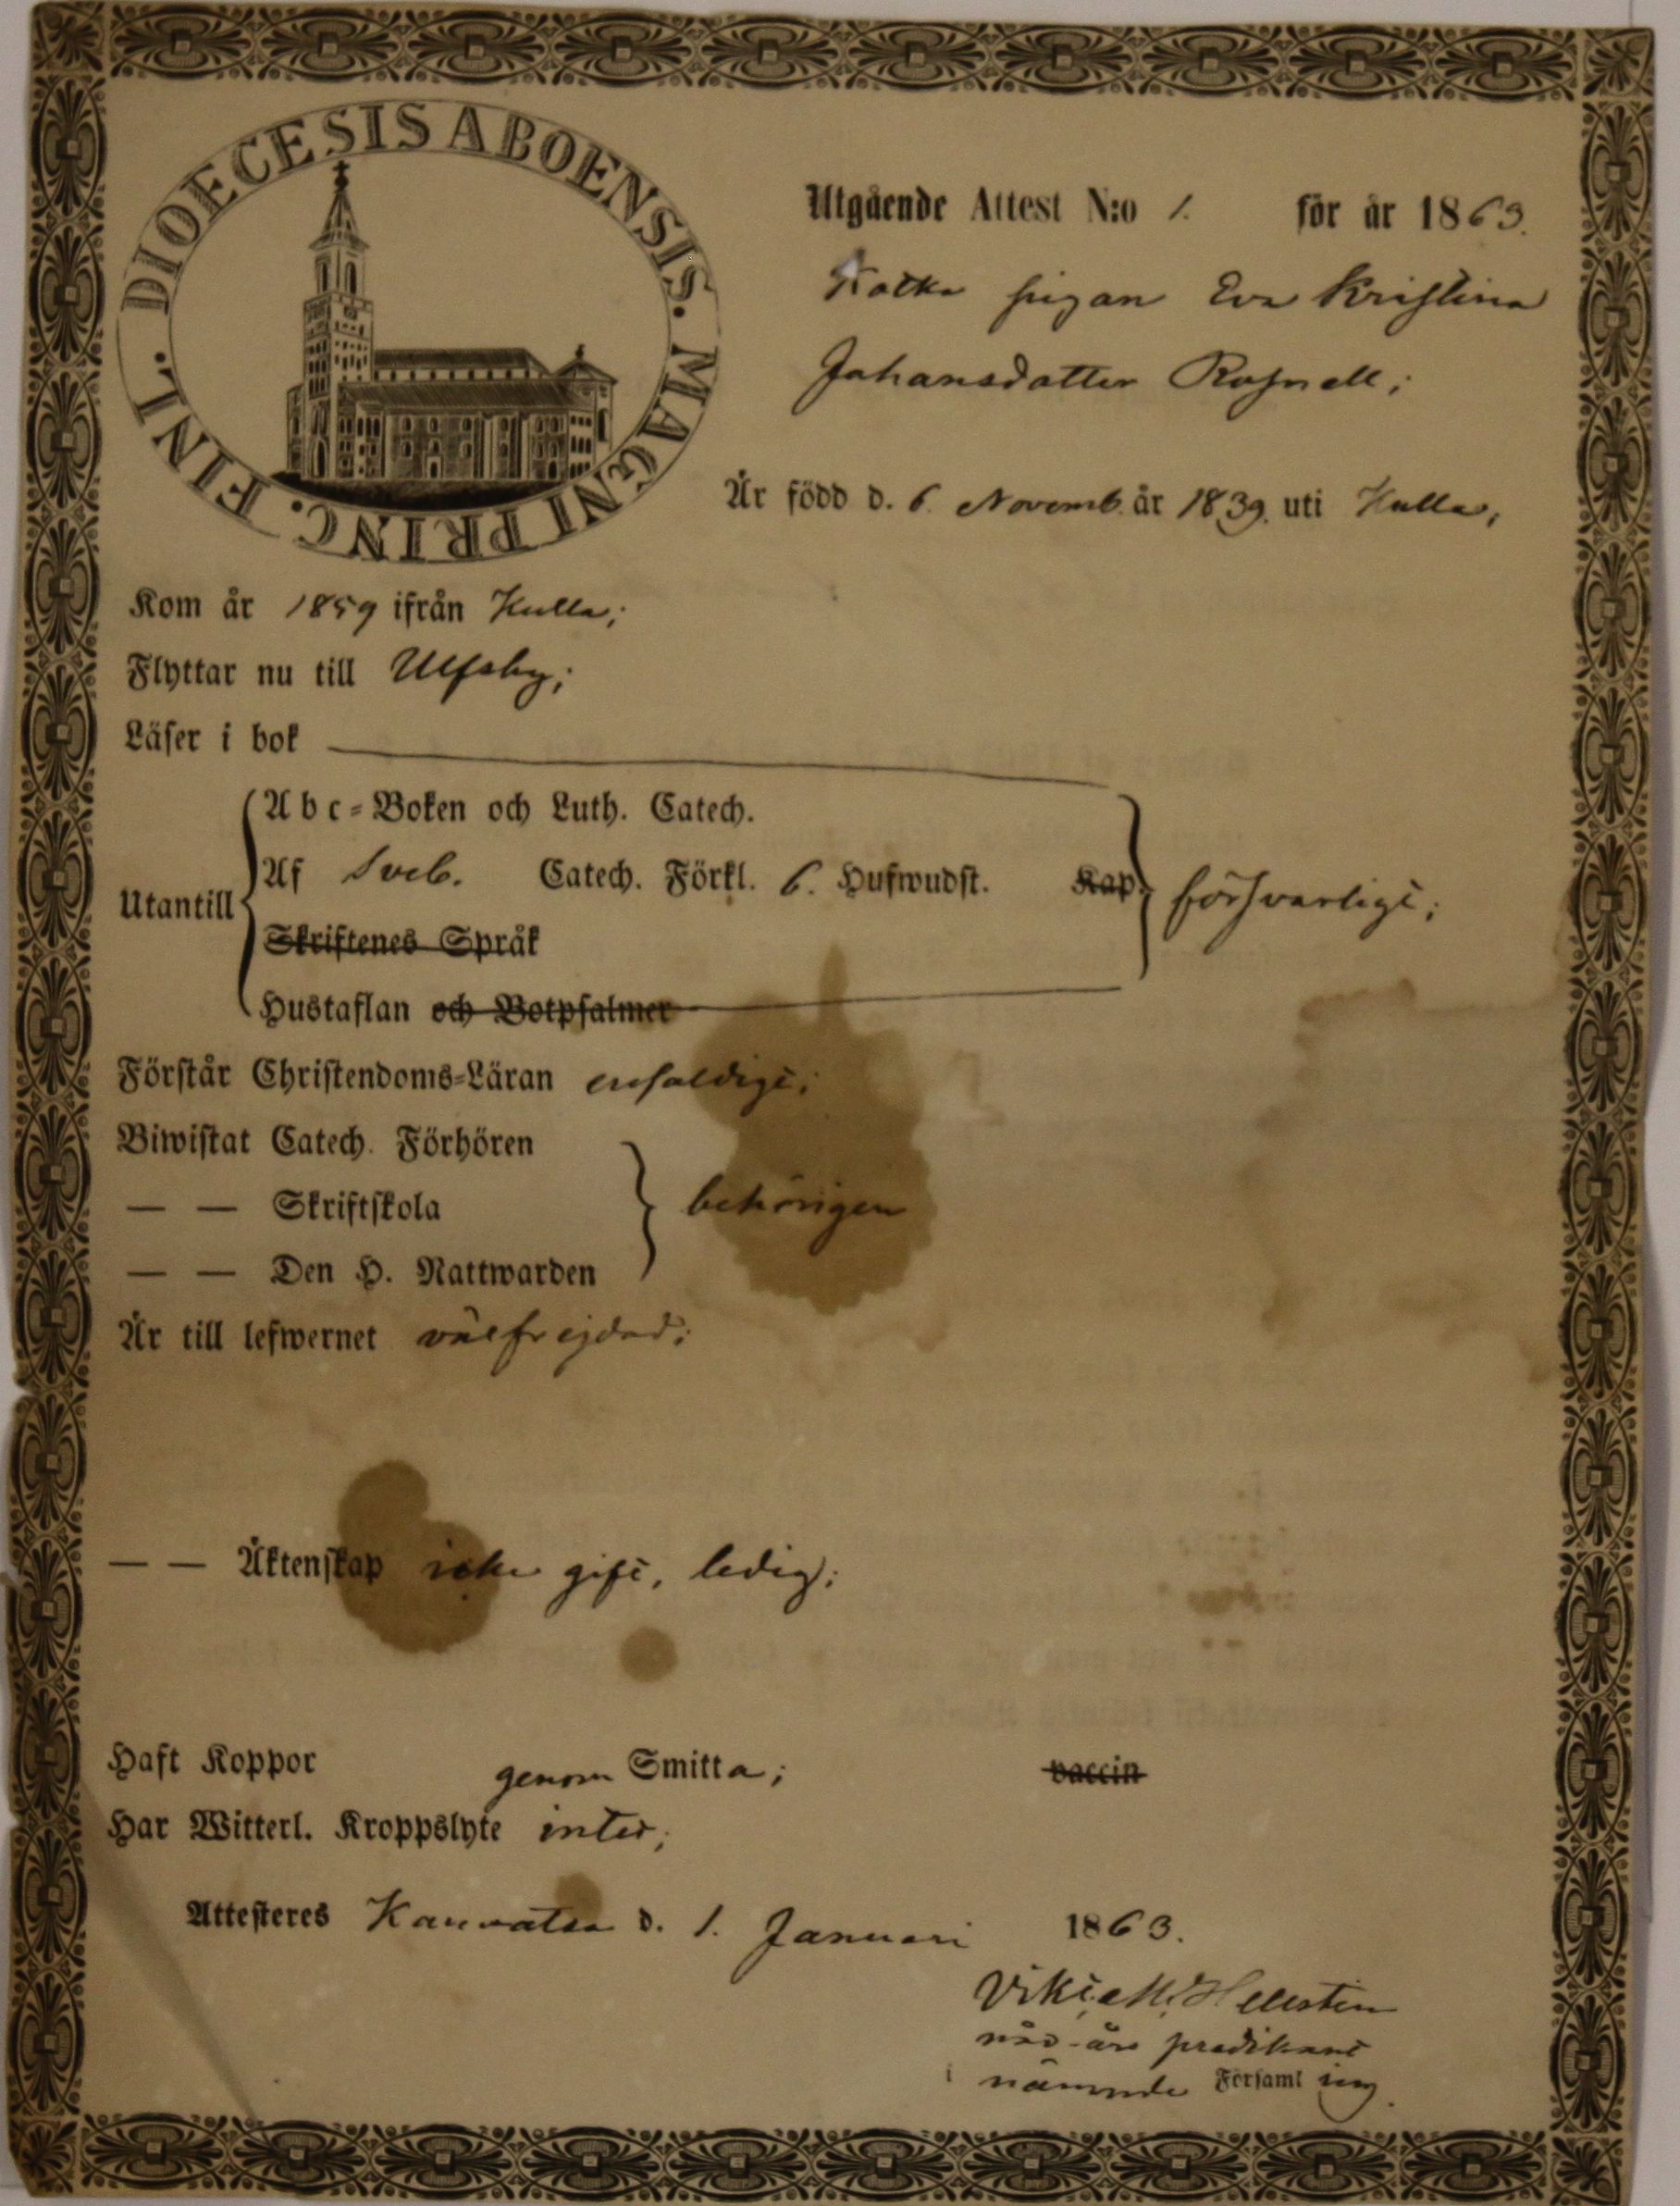 DIOECESIS ABOENSIS. MAGNI PRINC. FINL.
Utgående Attest N:o 1. för år 1863.
pigan Eva Kristina
Johansdotter Rosnell;
Är född d. 6. Novemb. år 1839. uti Kulla,
Kom år 1859 ifrån Kulla;
Flyttar nu till Ulfsby;
Läser i bok
Abc-Boken och Luth. Catech.
Utantill Af Sveb. Catech. Förkl. 6. Hufwudst. Kap. försvarligt;
Skriftenes Språk
Hustaflan och Botpsalmer
Förstår Christendoms-Läran enfaldigt;
Biwistat Catech. Förhören
— — Skriftskola behörigen
— — Den H. Nattwarden
Är till lefwernet välfrejdad;
— — Äktenskap icke gift, ledig;
Haft Koppor genom Smitta; vaccin
Har Witterl. Kroppslyte intet;
Attesteres Kauvatsa d. 1. Januari 1863.
Hellsten
predikant
i nämnde Församling.